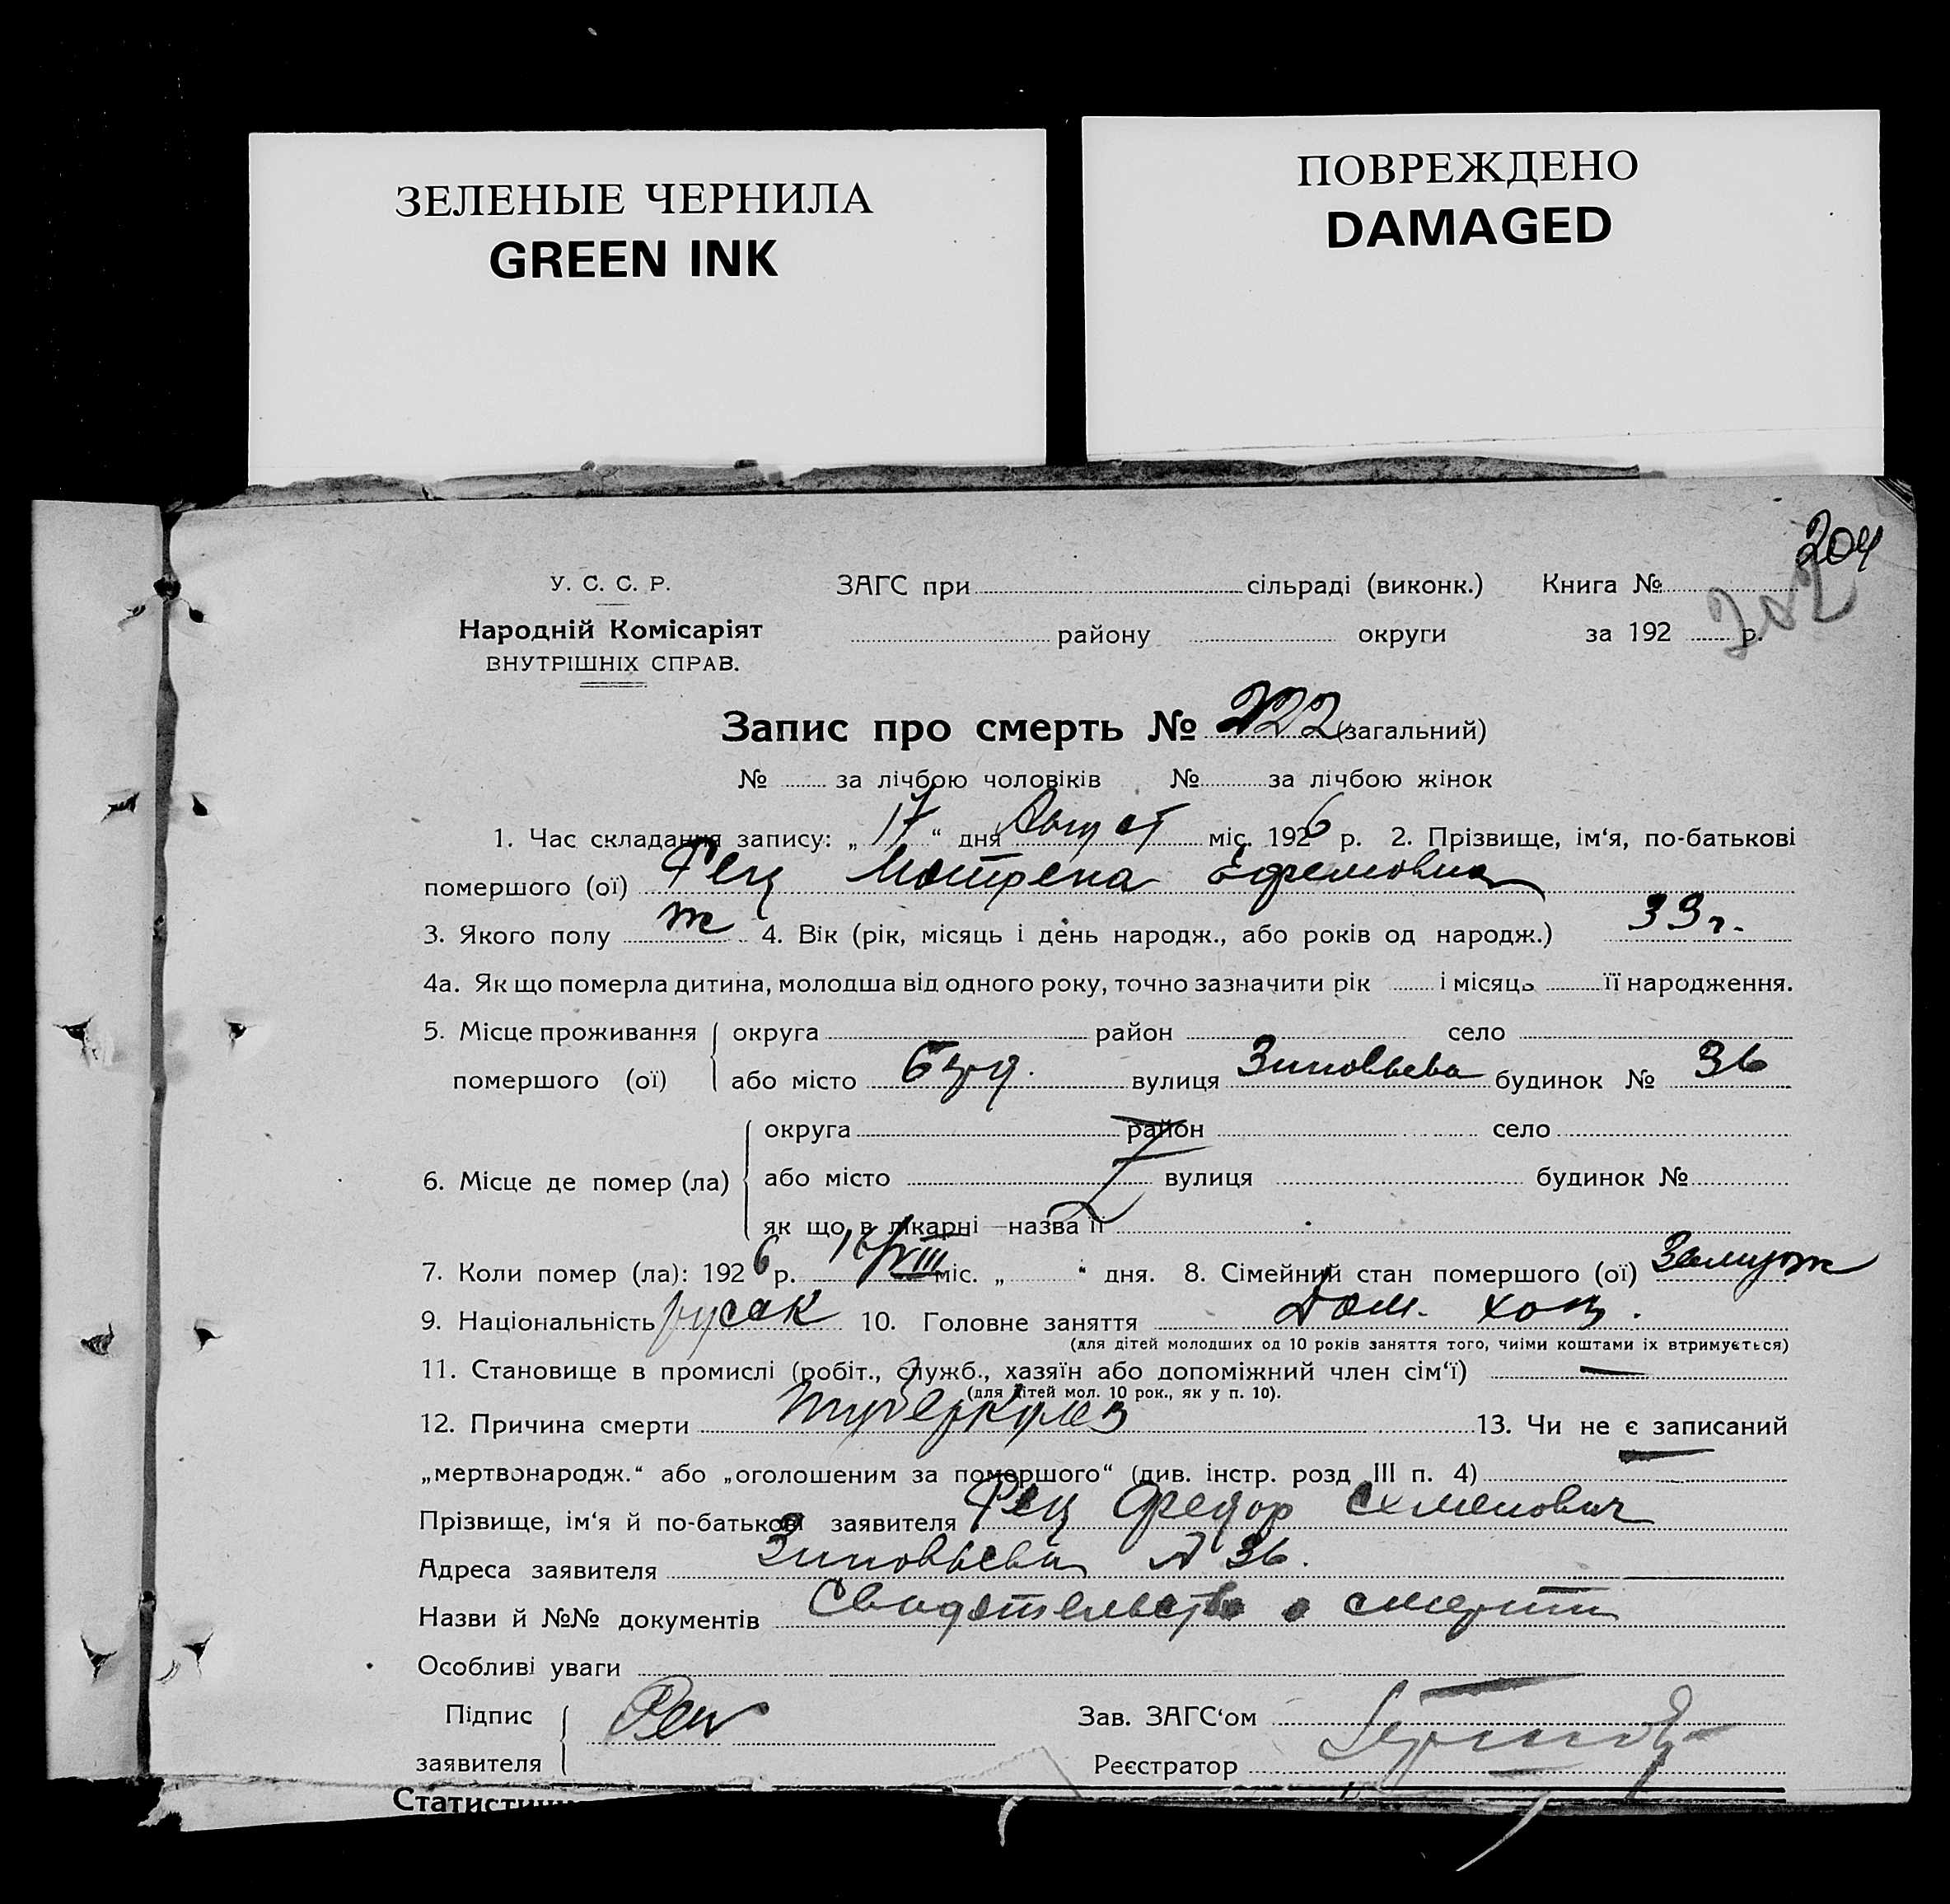 ЗЕЛЕНЫЕ ЧЕРНИЛА
GREEN INK
ПОВРЕЖДЕНО
DAMAGED
204
202
У. С. С. Р.
ЗАГС при сільраді (виконк.) Книга №
Народній Комісаріят
району округи за 192 р.
ВНУТРІШНІХ СПРАВ.
Запис про смерть № 222 (загальний)
№ за лічбою чоловіків № за лічбою жінок
1. Час складання запису: „ 17 “ дня Август міс. 1926 р. 2. Прізвище, ім‘я, по-батькові
помершого (ої) Рец Мотрена Ефремовна
3. Якого полу ж 4. Вік (рік, місяць і день народж., або років од народж.) 33 г.
4а. Як що померла дитина, молодша від одного року, точно зазначити рік і місяць її народження.
5. Місце проживання округа район село
помершого (ої) або місто вулиця Зиновьева будинок № 36
округа район село
6. Місце де помер (ла) або місто вулиця будинок №
як що в лікарні — назва її
7. Коли помер (ла): 1926 р. 16/VIII міс. „ “ дня. 8. Сімейний стан помершого (ої) Замуж
9. Національність русак 10. Головне заняття Дом. хоз.
(для дітей молодших од 10 років заняття того, чиїми коштами їх втримується)
11. Становище в промислі (робіт., служб., хазяїн або допоміжний член сім‘ї) —
(для дітей мол. 10 рок., як у п. 10).
12. Причина смерти туберкулез 13. Чи не є записаний
„мертвонародж.“ або „оголошеним за помершого“ (див. інстр. розд III п. 4) —
Прізвище, ім‘я й по-батькові заявителя Рец Федор Семенович
Адреса заявителя Зиновьева № 36.
Назви й №№ документів Свидетельство о смерти
Особливі уваги
Підпис Рец Зав. ЗАГС‘ом
заявителя Реєстратор